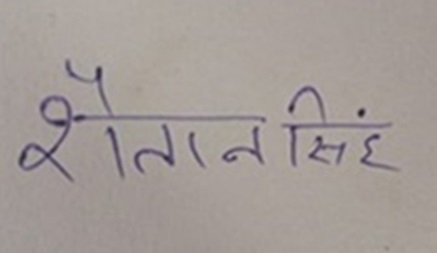 शैतान सिंह